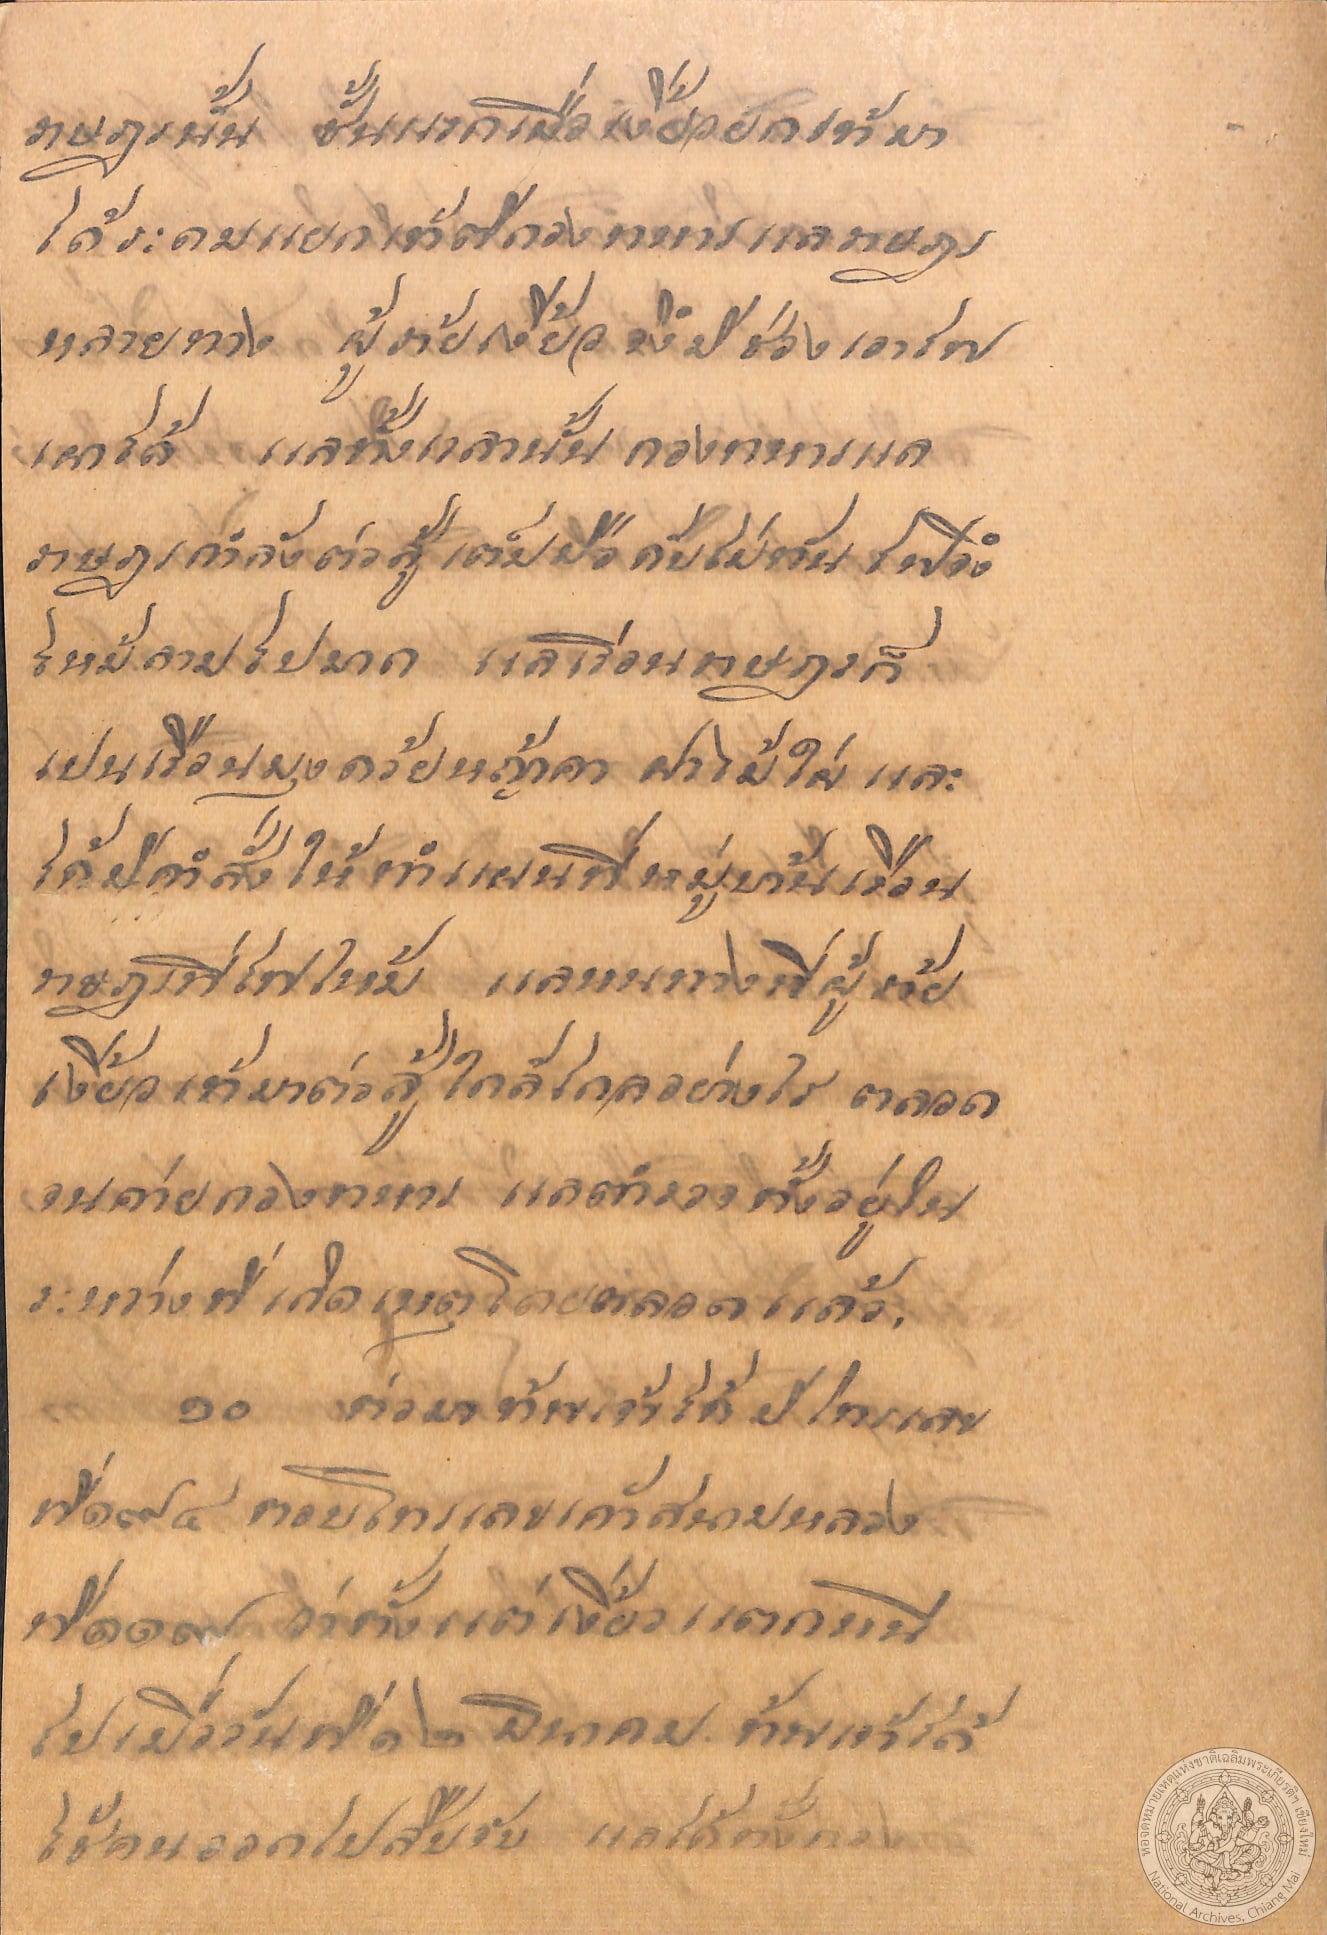 ราษฎรนั้น ชั้นแรกเมื่อเงี้ยวยกเข้ามา
ได้ระดมแยกเข้าตีกองทหารแลราษฎร
หลายทาง ผู้ร้ายเงี้ยวจึงมีช่องเอาไฟ
เผาได้ แลทั้งเวลานั้น กองทหารแล
ราษฎรกำลังต่อสู้เต็มมือดับไม่ทัน ไฟจึง
ไหม้ลามไปมาก แลเรือนราษฎรก็
เปนเรือนมุงด้วยหญ้าคา ฝาไม้ไผ่ และ
ได้มีคำสั่งให้ทำแผนที่หมู่บ้านเรือน
ราษฎรที่ไฟไหม้ แลหนทางที่ผู้ร้าย
เงี้ยวเข้ามาต่อสู้ใกล้ไกลอย่างไร ตลอด
จนค่ายกองทหาร แลตำรวจตั้งอยู่ใน
ระหว่างที่เกิดเหตุโดยตลอดแล้ว,
๑๐ ต่อมาข้าพเจ้าได้มีโทรเลข
ที่ ๑๙๔ ตอบโทรเลขเค้าสนามหลวง
ที่ ๑๑๙ ว่าตั้งแต่เงี้ยวแตกหนี
ไปเมื่อวันที่ ๑๒ มีนาคม ข้าพเจ้าได้
ใช้คนออกไปสืบจับ แลได้ตั้งกอง
หอจดหมายเหตุแห่งชาติเฉลิมพระเกียรติฯ เชียงใหม่
National Archives, Chiang Mai